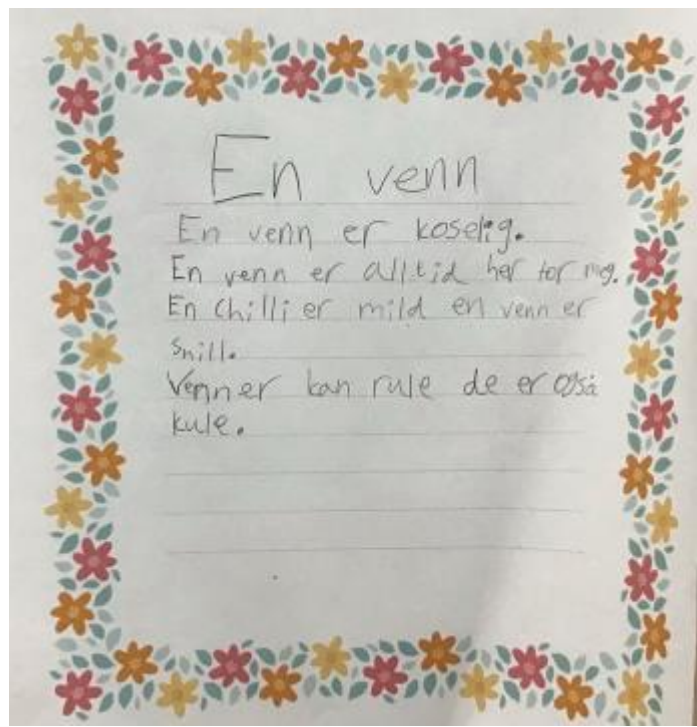 En venn
En venn er koselig.
En venn er alltid her for meg.
En Chilli er mild en venn er
snill.
Venner kan rule de er også
kule.